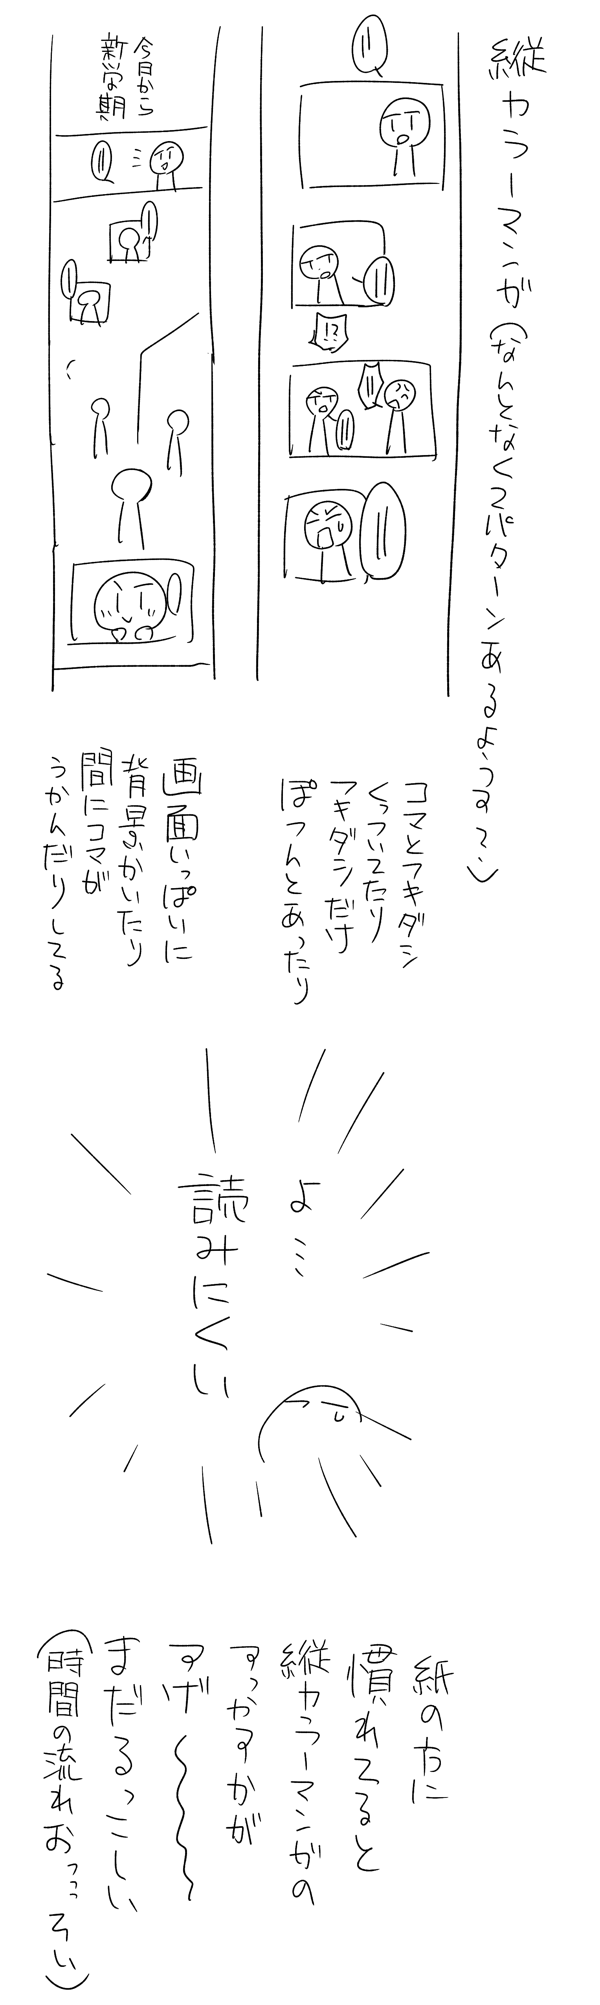 縦カラーマンガ(なんとなく2パターンあるようす?)
!?
今日から
新学期
コマとフキダシ
くっついてたり
フキダシだけ
ぽつんとあったり
画面いっぱいに
背景かいたり
間にコマが
うかんだりしてる
よ…
読みにくい
紙の方に
慣れてると
縦カラーマンガの
すっかすかが
すげ〜〜〜
まだるっこしい
(時間の流れおっ…そい)